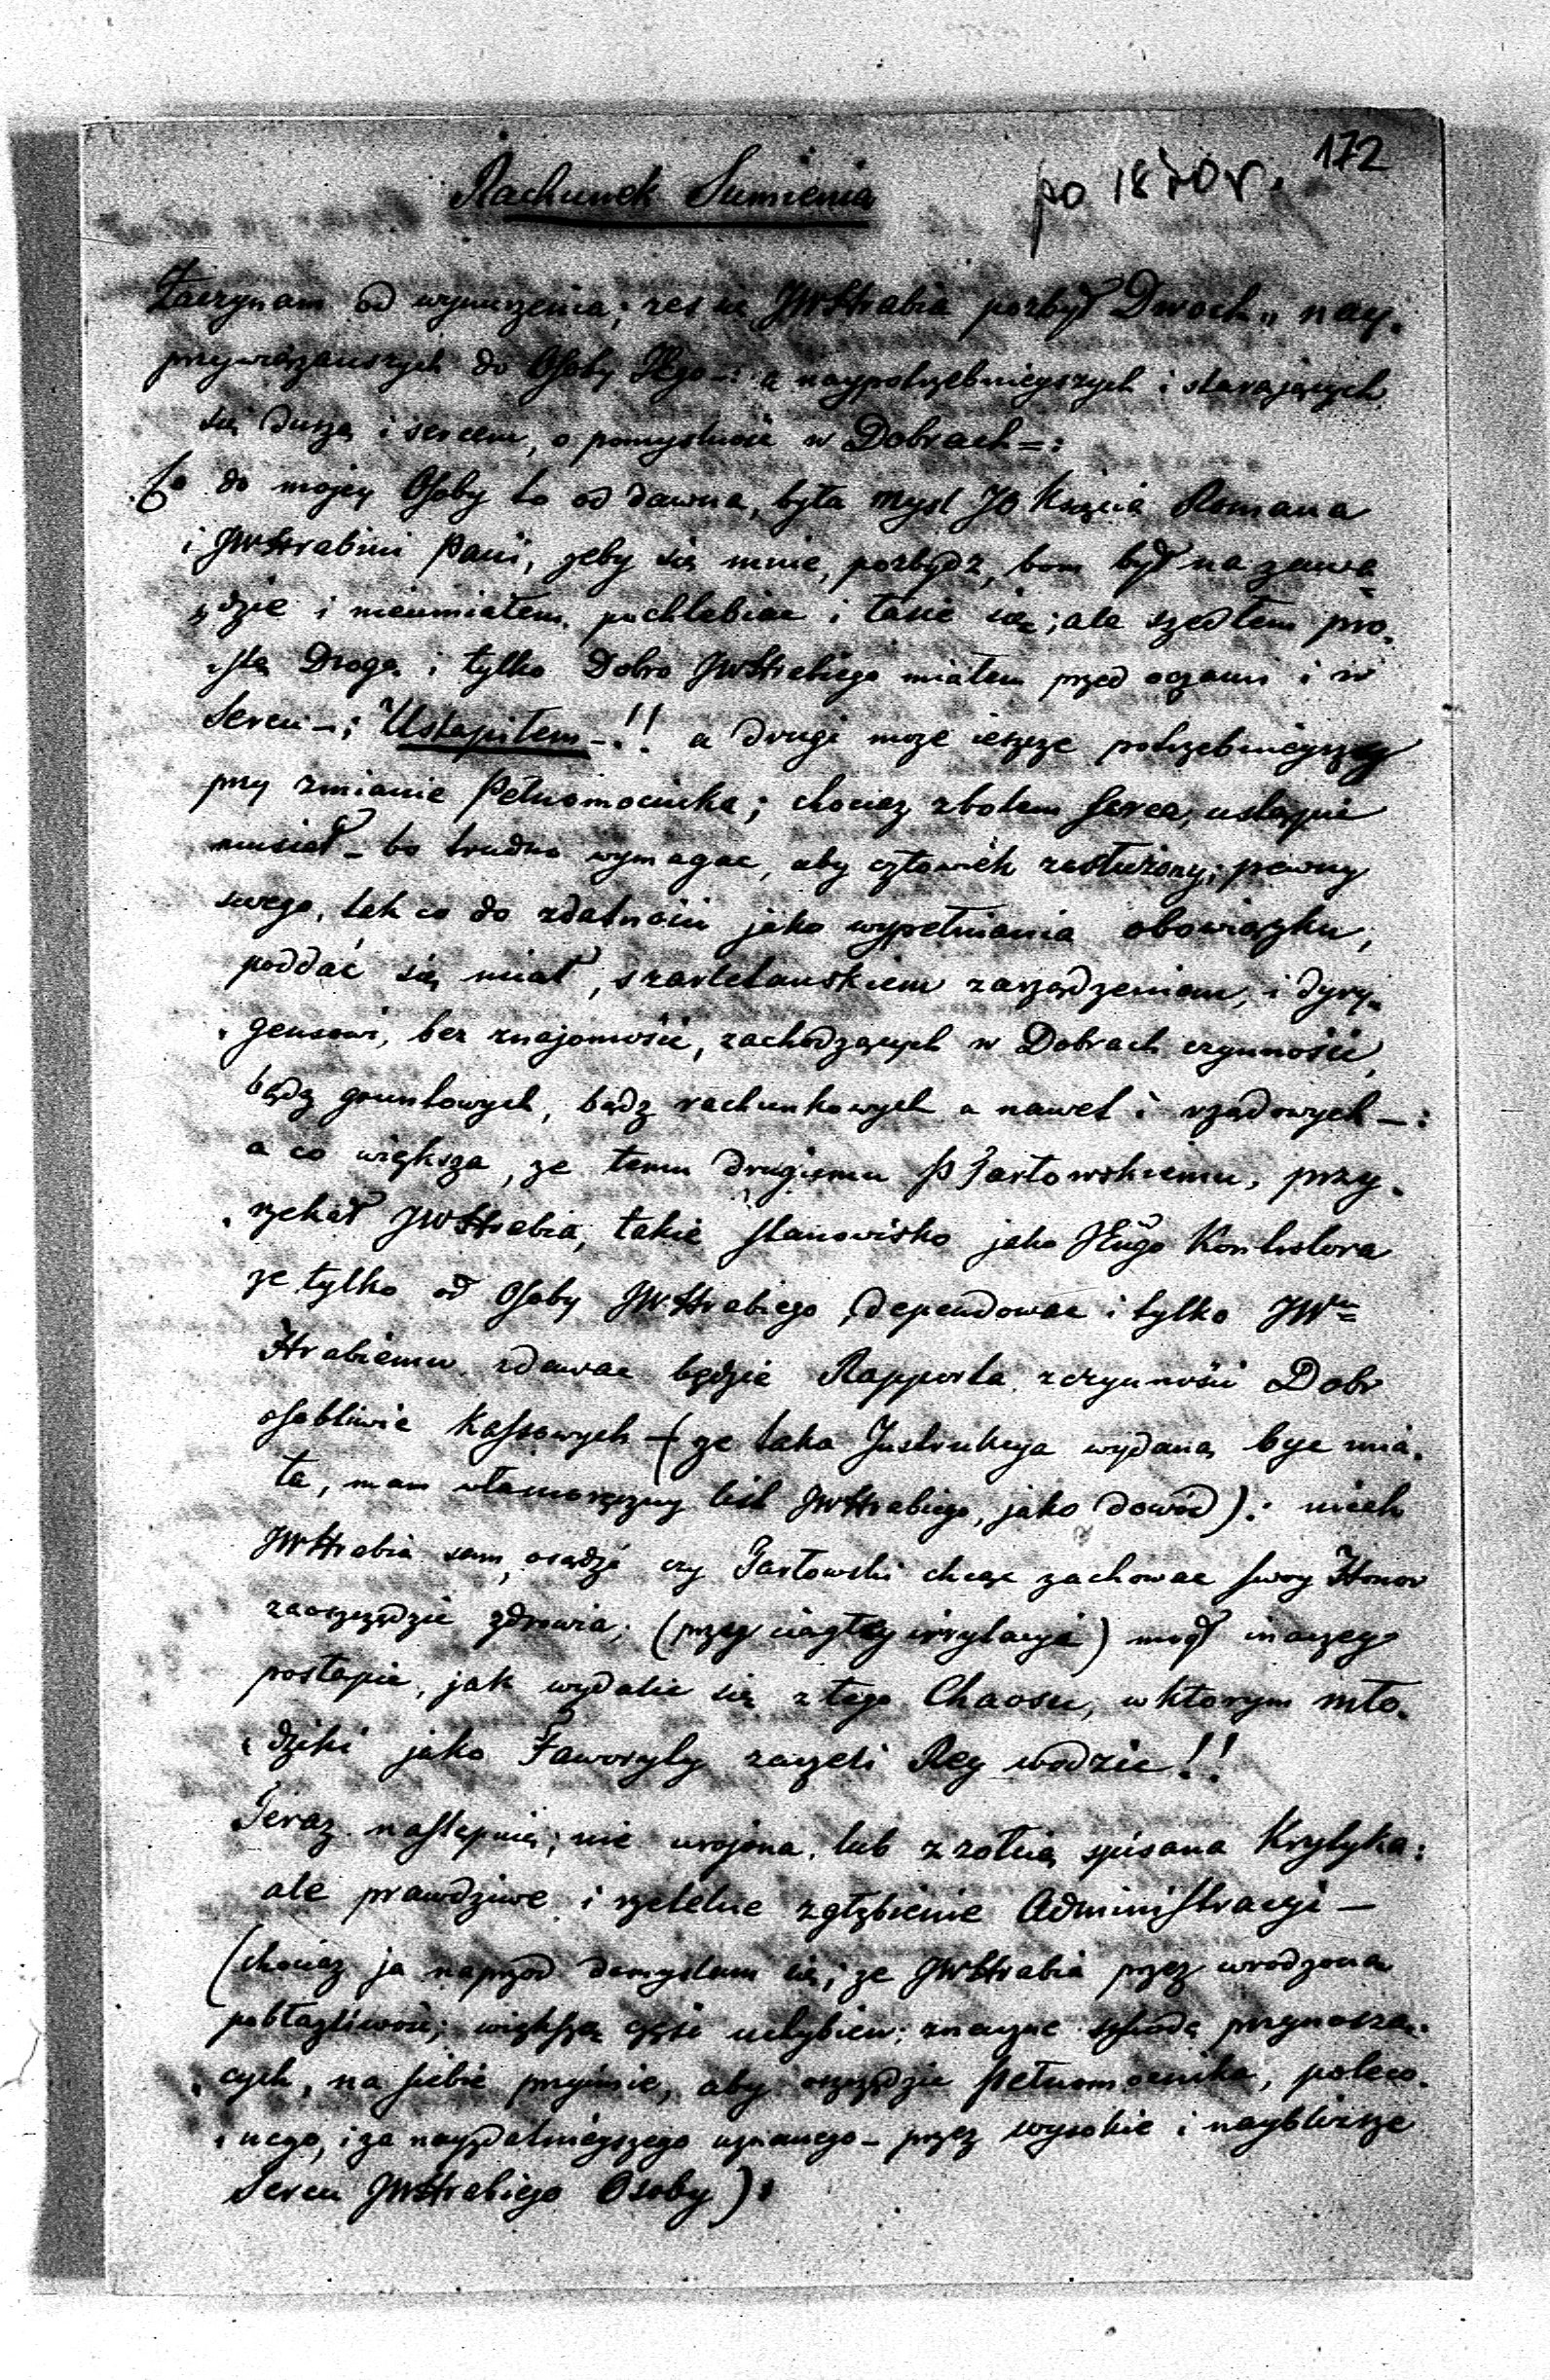 172
po 1870 r.
Rachunek Sumienia
Zaczynam od wynurzenia; żeś się JWHrabia pozbył Dwoch „ nay.
przywiązanszych do Osoby Jego –: a naypotrzebnieyszych i starających
się duszą i sercem, o pomyslnosc w Dobrach =:
Co do mojey Osoby to od dawna, była mysl JO Xsięcia Romana
i JWHrabini Pani, żeby się mnie, pozbydź, bom był na zawa
„dzie i nieumiałem pochlebiac i łasic się; ale szedłem pro.
„stą Drogą i tylko Dobro JWHrabiego miałem przed oczami i w
Sercu –; Ustąpiłem –!! a drugi moze ieszcze potrzebnieyszy
przy zmianie Pełnomocnika; chociaz zbolem serca, ustąpic
musiał – bo trudno wymagac, aby człowiek zasłużony; pewny
swego, tak co do zdatnosci jako wypełniania obowiązku,
poddać się miał, szarlatanskiem zarządzeniom, i dyry„
„gensowi, bez znajomosci, zachodzących w Dobrach czynnosci,
bądz gruntowych, bądz rachunkowych a nawet i rządowych –:
a co większa, ze temu drugiemu P Tartowskiemu, przy.
„rzekał JWHrabia, takie stanowisko jako JEngo Kontrolora
ze tylko od Osoby JWHrabiego dependowac i tylko JWu
Hrabiemu zdawac będzie Rapporta z czynnosci Dobr
osobliwie Kassowych – (ze taka Instrukcya wydaną byc mia.
ła, mam własnoręczny list JWHrabiego, jako dowod): niech
JWHrabia sam, osądzi czy Tartowski chcąc zachowac swoy Honor
zaoszczędzic zdrowia; (przy ciągłey irrytacyi) mogł inaczey
postąpic, jak wydalic się z tego Chaosu, w ktorym mło.
„dziki jako Faworyty zaczeli Rey wodzic!!
Teraz następuie; nie urojona, lub z zołcią spisana Krytyka:
ale prawdziwe i rzetelne zgłębienie Administracyi –
(chociaz ja naprzod domyslam się; ze JWHrabia przez wrodzoną
pobłazliwosc; większą częsc uchybien; znaczne szkodę przynoszą„
„cych, na siebie przyimie, aby oszczędzic Pełnomocnika, poleco.
„nego, i za nayzdatnieyszego uznanego – przez wysokie i nayblizsze
Sercu JWHrabiego Osoby).